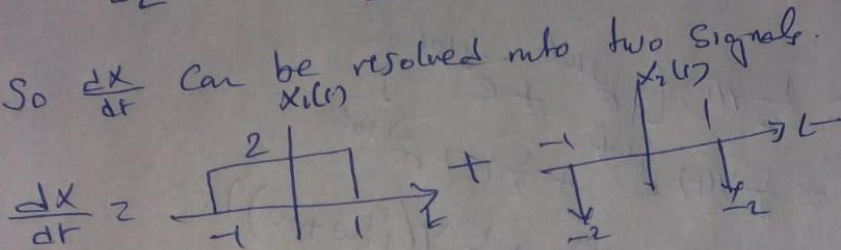 So dx/dt can be resolved into two signals.
x₁(t) x₂(t)
dx/dt = 2 -1 1 t + -1 1 t -2 -2